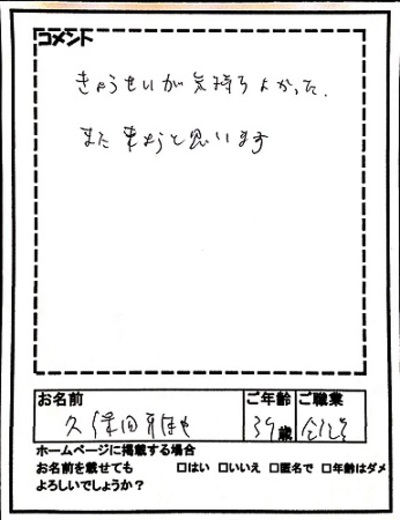 コメント
きょうせいが気持ちよかった.
また来ようと思います
お名前 ご年齢 ご職業
久保田 39歳
ホームページに掲載する場合
お名前を載せても □はい □いいえ □匿名で □年齢はダメ
よろしいでしょうか？